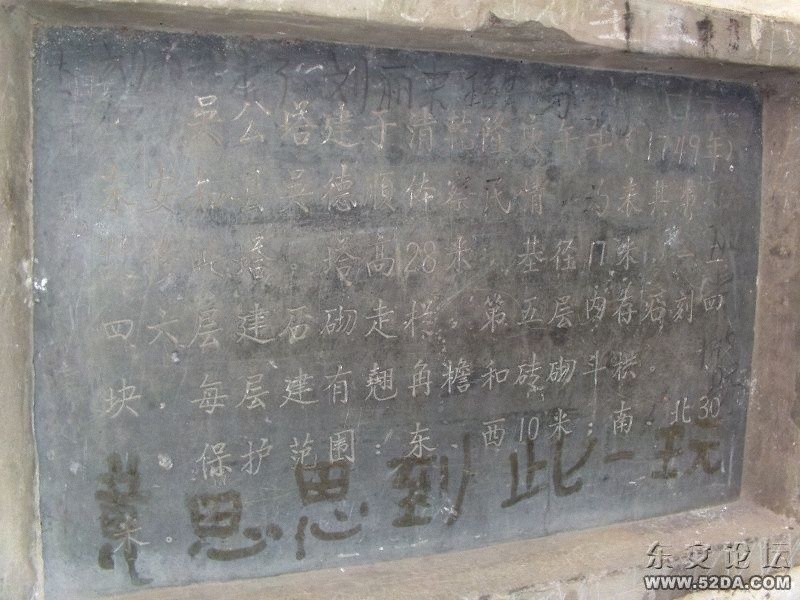 吳公塔建于清乾隆庚午年(1749年)
东安知县吳德顺体察民情
修此塔。塔高28米,基径17米,一五
四六层建石砌走栏,第五层内存 刻四
块。每层建有翘角檐和砖砌斗栱。
保护范围:东、西10米;南、北30
米。
黄思思到此一玩
刘丽
东安论坛
WWW.52DA.COM